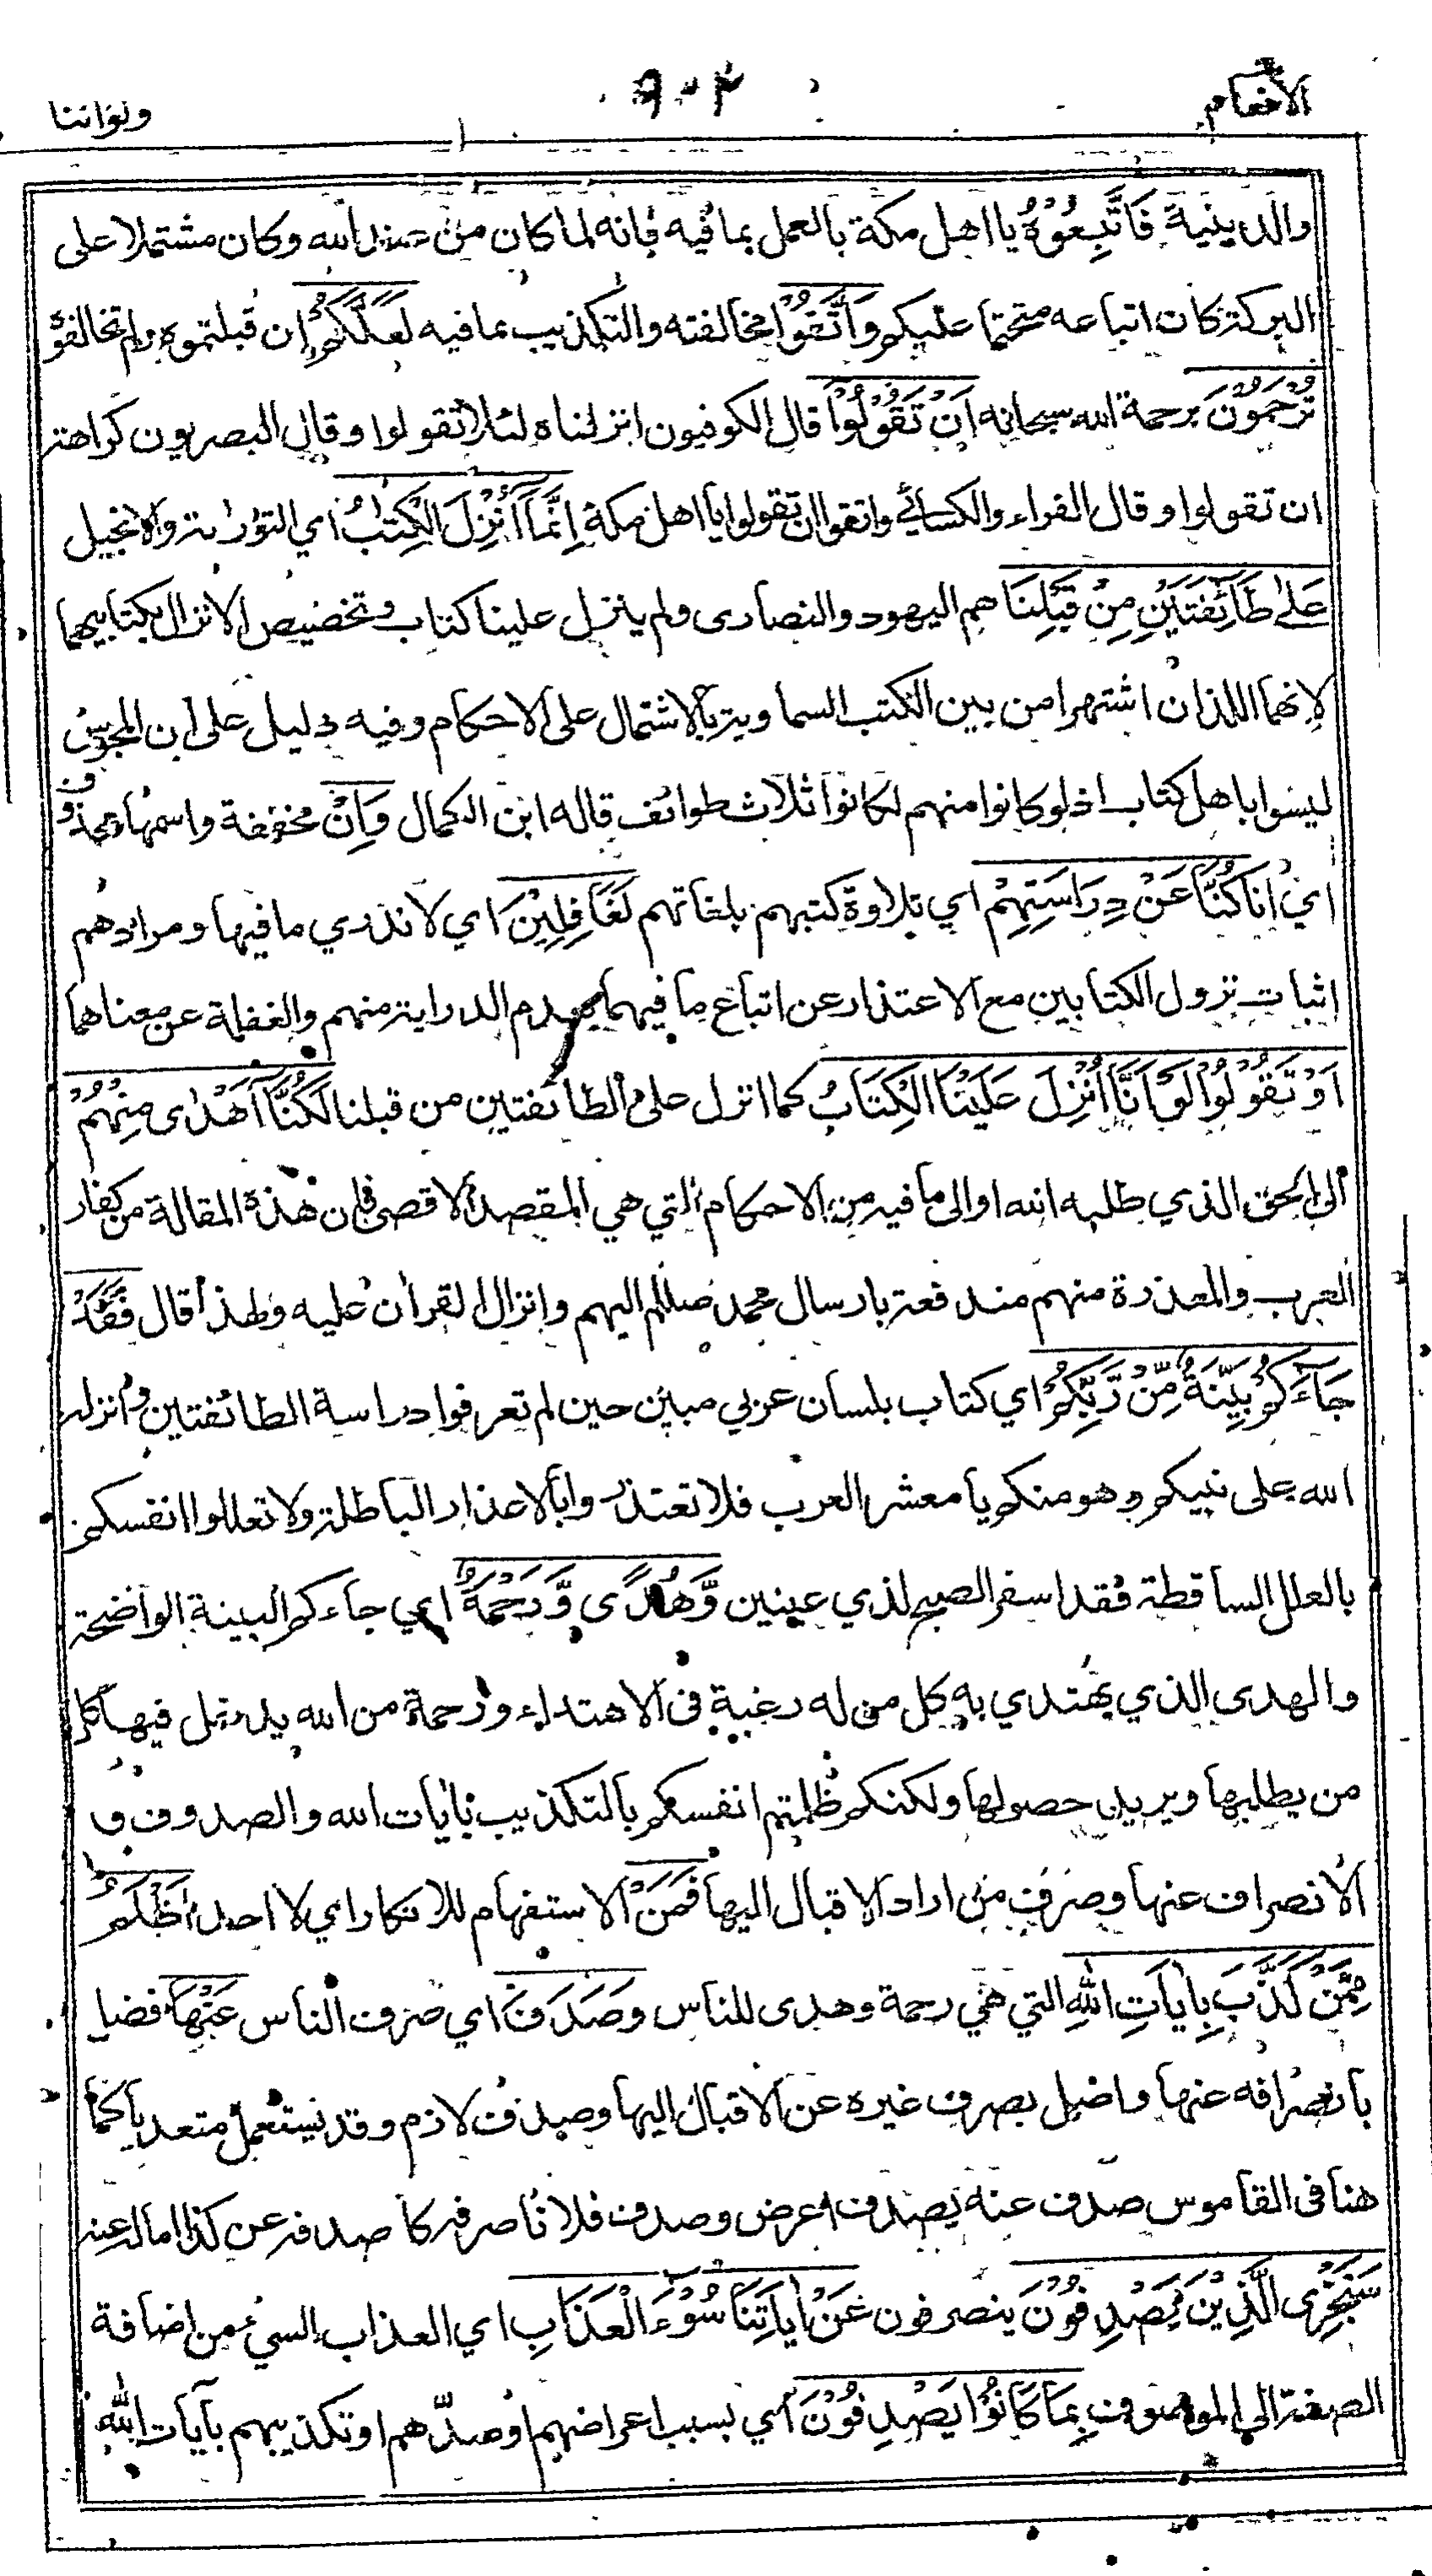 الانعام
٩٠٢
ولواننا
والدينية فَاتَّبِعُوْهُ يا اهل مكة بالعمل بما فيه فانه لما كان من عند الله وكان مشتملا على
البركة كان اتباعه متحتما عليكم وَاتَّقُوْا مخالفته والتكذيب بما فيه لَعَلَّكُمْ ان قبلتموه ولم تخالفوه
تُرْحَمُوْنَ برحمة الله سبحانه اَنْ تَقُوْلُوْا قال الكوفيون انزلناه لئلا تقولوا وقال البصريون كراهة
ان تقولوا وقال الفراء والكسائي واتقوا ان تقولوا يا اهل مكة اِنَّمَا اُنْزِلَ الْكِتٰبُ اي التورٰىة والانجيل
عَلٰى طَائِفَتَيْنِ مِنْ قَبْلِنَا هم اليهود والنصارى ولم ينزل علينا كتاب وتخصيص الانزال بكتابيهما
لانهما اللذان اشتهرا من بين الكتب السماوية بالاشتمال على الاحكام وفيه دليل على ان المجوس
ليسوا باهل كتاب اذ لو كانوا منهم لكانوا ثلاث طوائف قاله ابن الكمال وَاِنْ مخففة واسمها محذوف
اي انا كُنَّا عَنْ دِرَاسَتِهِمْ اي تلاوة كتبهم بلغاتهم لَغَافِلِيْنَ اي لا ندري ما فيها ومرادهم
اثبات نزول الكتابين مع الاعتذار عن اتباع ما فيهما بعدم الدراية منهم والغفلة عن معناهما
اَوْ تَقُوْلُوْا لَوْ اَنَّا اُنْزِلَ عَلَيْنَا الْكِتَابُ كما انزل على الطائفتين من قبلنا لَكُنَّا اَهْدٰى مِنْهُمْ
الى الحق الذي طلبه الله او الى ما فيه من الاحكام التي هي المقصد الاقصى فان هذه المقالة من كفار
العرب والمعذرة منهم مندفعة بارسال محمد صللم اليهم وانزال القرأن عليه ولهذا قال فَقَدْ
جَاءَكُمْ بَيِّنَةٌ مِّنْ رَّبِّكُمْ اي كتاب بلسان عربي مبين حين لم تعرفوا دراسة الطائفتين وانزله
الله على نبيكم وهو منكم يا معشر العرب فلا تعتذروا بالاعذار الباطلة ولا تعللوا انفسكم
بالعلل الساقطة فقد اسفر الصبح لذي عينين وَّهُدًى وَّرَحْمَةٌ اي جاءكم البينة الواضحة
والهدى الذي يهتدي به كل من له رغبة فى الاهتداء ورحمة من الله يدخل فيها كل
من يطلبها ويريد حصولها ولكنكم ظلمتم انفسكم بالتكذيب بأيات الله والصدوف و
الانصراف عنها وصرف من اراد الاقبال اليها فَمَنْ الاستفهام للانكار اي لا احد اَظْلَمُ
مِمَّنْ كَذَّبَ بِاٰيَاتِ اللّٰهِ التي هي رحمة وهدى للناس وَصَدَفَ اي صرف الناس عَنْهَا فضل
بانصرافه عنها واضل بصرف غيره عن الاقبال اليها وصدف لازم وقد يستعمل متعديا كما
هنا فى القاموس صدف عنه يصدف اعرض وصدف فلانا صرفه كاصدفه عن كذا اماله عنه
سَنَجْزِى الَّذِيْنَ يَصْدِفُوْنَ ينصرفون عَنْ اٰيَاتِنَا سُوْءَ الْعَذَابِ اي العذاب السيئ من اضافة
الصفة الى الموصوف بِمَا كَانُوْا يَصْدِفُوْنَ اي بسبب اعراضهم او صدّهم او تكذيبهم بآيات الله